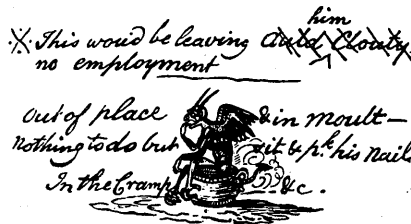 him
※ This would be leaving Auld Clouty
no employment
out of place & in moult—
Nothing to do but sit & pk. his Nail
In the Cramp &c.